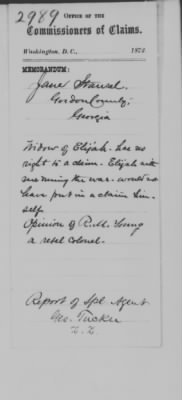 2989
OFFICE OF THE
Commissioners of Claims.
Washington, D. C., 187
MEMORANDUM:
Jane
Gordon County,
Georgia
Widow of Elijah. has no
right to a claim. Elijah
during the war. would not
have put in a claim him-
self
Opinion of R.M. Young
a rebel colonel.
Report of Spl Agent
Geo. Tucker